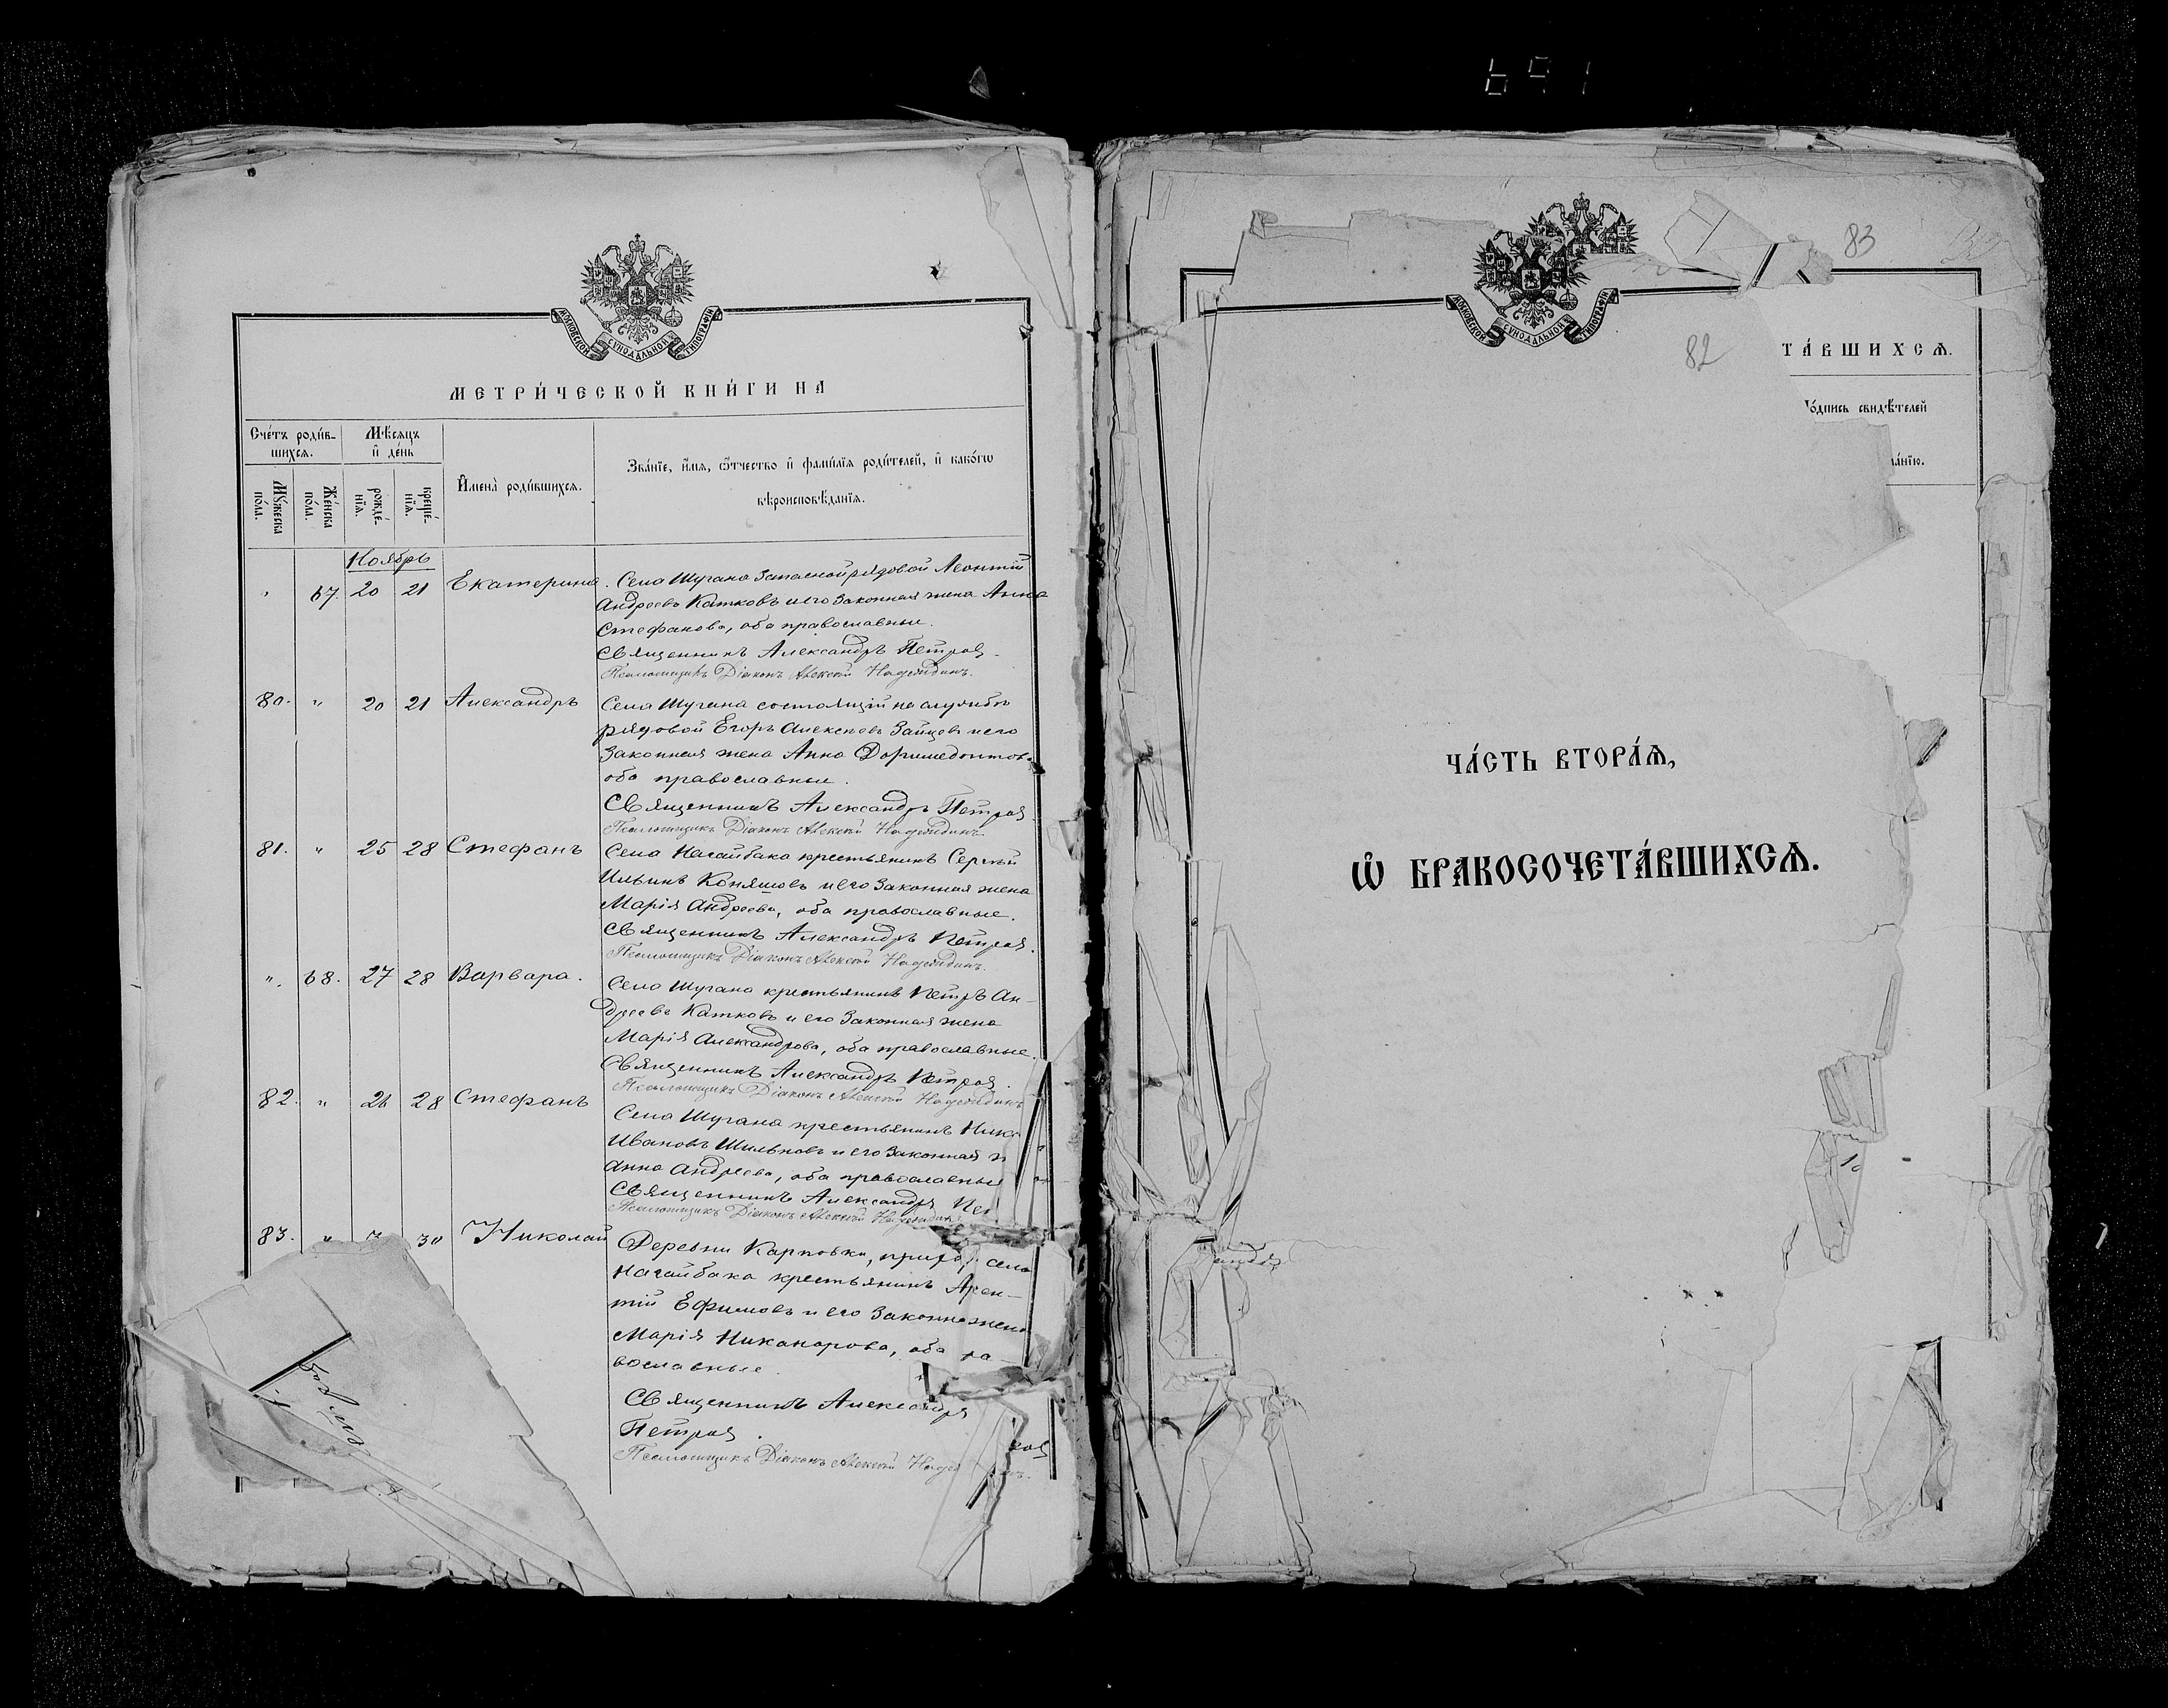 МОСКОВСКОЙ СѴНОДАЛЬНОЙ ТИПОГРАФІИ
МЕТРИ́ЧЕСКОЙ КНИ́ГИ НА
Сче́тъ роди́в-
шихсѧ.
Мѣ́сѧцъ
и҆ де́нь
И҆мена̀ роди́вшихсѧ.
Зва́нїе, и҆́мѧ, ѻ҆́тчество и҆ фами́лїѧ роди́телей, и҆ како́гѡ
вѣроисповѣ́данїѧ.
Мꙋ́жеска
по́ла.
Же́нска
по́ла.
рожде́-
нїѧ.
креще́-
нїѧ.
Ноябрь
67. 20 21 Екатерина. Села Шугана запасной рядовой Леонтій
Андреевъ Катковъ и его законная жена Анна
Стефанова, оба православные.
Священникъ Александръ Петров
Псаломщикъ Діаконъ Алексѣй Надеждинъ.
80. " 20 21 Александръ Села Шугана состоящій на службѣ
рядовой Егоръ Алексѣевъ Зайцевъ и его
законная жена Анна Доримедонтова
оба православные.
Священникъ Александръ Петров
Псаломщикъ Діаконъ Алексѣй Надеждинъ
81. " 25 28 Стефанъ Села Нагайбака крестьянинъ Сергѣй
Ильинъ Коняшовъ и его законная жена
Марія Андреева, оба православные.
Священникъ Александръ Петров.
Псаломщикъ Діаконъ Алексѣй Надеждинъ.
". 68. 27 28 Варвара. Села Шугана крестьянинъ Петръ Ан-
дреевъ Катковъ и его законная жена
Марія Александрова, оба православные.
Священникъ Александръ Петров.
Псаломщикъ Діаконъ Алексѣй Надеждинъ
82. " 26 28 Стефанъ Села Шугана крестьянинъ
Ивановъ Шильновъ и его законная
Анна Андреева, оба православные
Священникъ Александръ Пет
Псаломщикъ Діаконъ Алексѣй Надеждинъ
83. " 30 Николай Деревни Карповки, села
Нагайбака крестьянинъ Арсен-
тій Ефимовъ и его законна жена
Марія Никанорова, оба
вославные.
Священникъ Александръ
Петров.
Псаломщикъ Діаконъ Алексѣй
83
82
МОСКОВСКОЙ СѴНОДАЛЬНОЙ ТИПОГРАФІИ
ТА́ВШИХСѦ.
о́дпись свидѣ́телей
ла́нїю.
ЧА́СТЬ ВТОРА́Ѧ,
Ѡ҆ БРАКОСОЧЕТА́ВШИХСѦ.